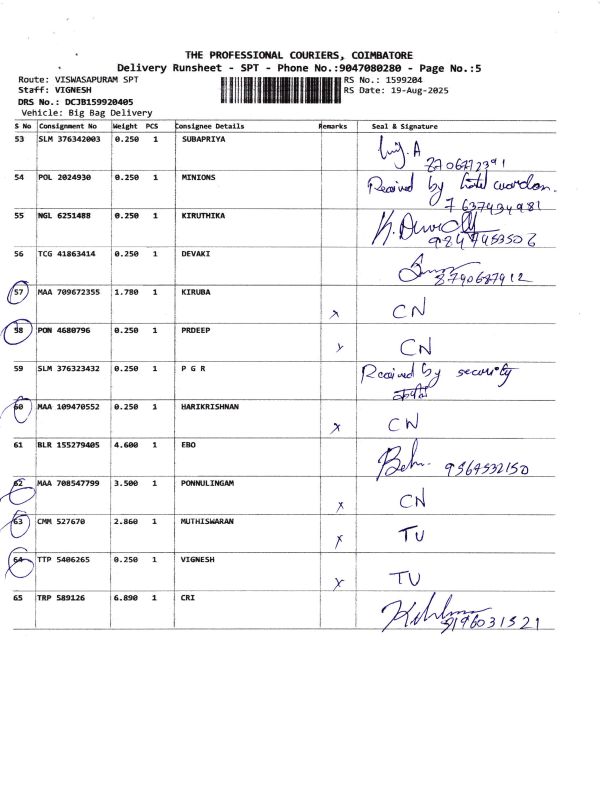 THE PROFESSIONAL COURIERS, COIMBATORE
Delivery Runsheet - SPT - Phone No.:9047080280 - Page No.:5
Route: VISWASAPURAM SPT RS No.: 1599204
Staff: VIGNESH RS Date: 19-Aug-2025
DRS No.: DCJB159920405
Vehicle: Big Bag Delivery
S No Consignment No Weight PCS Consignee Details Remarks Seal & Signature
53 SLM 376342003 0.250 1 SUBAPRIYA
54 POL 2024930 0.250 1 MINIONS Received by hotel wardon.
7637434981
55 NGL 6251488 0.250 1 KIRUTHIKA
56 TCG 41863414 0.250 1 DEVAKI
8790687912
57 MAA 709672355 1.780 1 KIRUBA x CN
58 PON 4680796 0.250 1 PRDEEP x CN
59 SLM 376323432 0.250 1 P G R Received by security
60 MAA 109470552 0.250 1 HARIKRISHNAN x CN
61 BLR 155279405 4.600 1 EBO 9364532150
62 MAA 708547799 3.500 1 PONNULINGAM x CN
63 CMM 527670 2.860 1 MUTHISWARAN x TU
64 TTP 5406265 0.250 1 VIGNESH x TU
65 TRP 589126 6.890 1 CRI